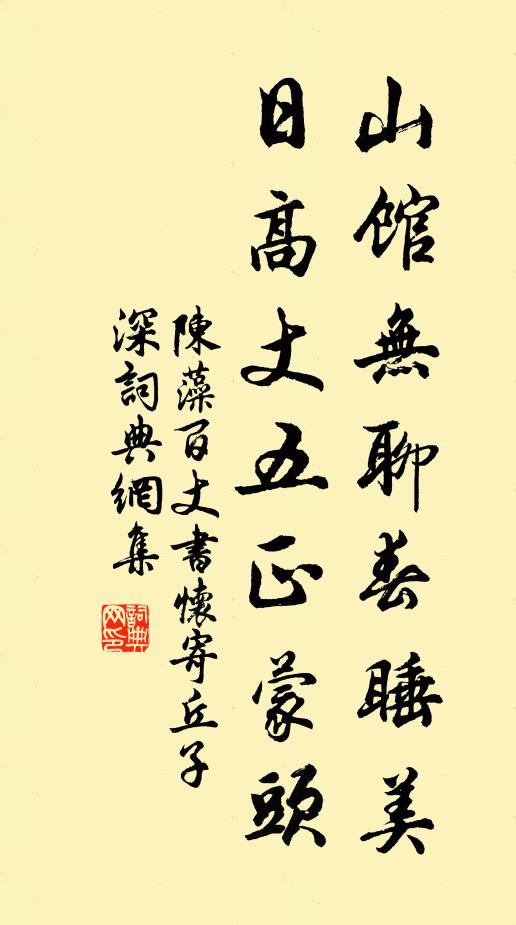 山館無聊春睡美
日高丈五正蒙頭
陳藻百丈書懷寄丘子
深詞典網集
詞典網印